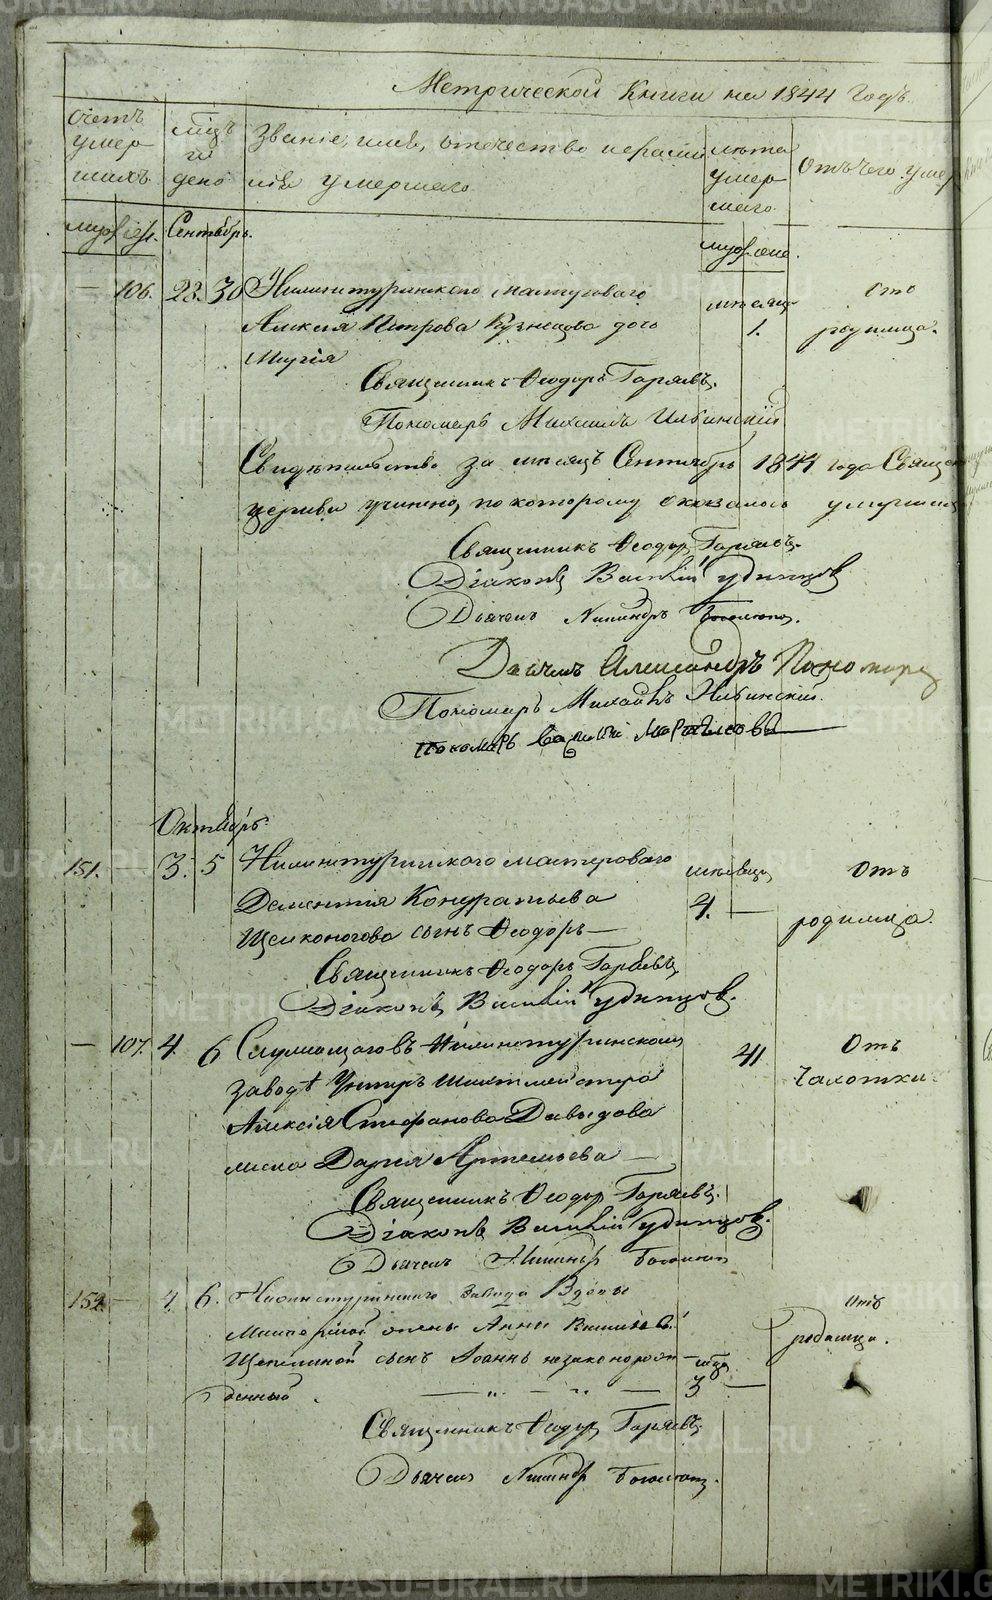 Метрической Книги на 1844 Годъ.
Счетъ умер шихъ.
мцъ и день
Званіе, имя, отечество и фамилія умершаго.
лѣта умершаго.
Отъ чего умер
муж. жен.
Сентябрь.
муж. жен.
— 106. 23. 30 Нижнетуринскаго мастероваго
Алексія Петрова Кузнецова дочь
Марія
мѣсяц. 1.
Отъ родимца.
Священникъ Ѳеодоръ Горяевъ.
Пономарь Михаилъ Ильинскій
Свидѣтельство за мѣсяцъ Сентябрь 1844 года Священ
церкви учинено, по которому оказалось умершихъ
Священникъ Ѳеодоръ Горяевъ.
Діаконъ Василій Удинцов
Дьячекъ Никандръ
Дьячекъ Александръ Пономарев
Пономарь Михаилъ Ильинскій.
Пономарь Василій
Октябрь.
151. — 3. 5 Нижнетуринскаго мастероваго
Дементія Кондратьева
Щелконогова сынъ Ѳеодоръ —
мѣсяца 4. —
Отъ родимца.
Священникъ Ѳеодоръ Горяевъ
Діаконъ Василій Удинцов.
— 107. 4. 6 Служащаго въ Нижнетуринскомъ
заводѣ Унтеръ Шихтмейстера
Алексія Стефанова Давыдова
жена Дарья Артемьева —
41
Отъ Чахотки.
Священникъ Ѳеодоръ Горяевъ.
Діаконъ Василій Удинцов.
Дьячекъ Никандр
152. — 4. 6. Нижнетуринскаго завода Вдовы
Мастерской жены Анны
сынъ Іоаннъ незаконорож
денный. — „ — „ —
мця 3 —
Отъ родимца.
Священникъ Ѳеодор Горяевъ.
Дьячекъ Никандр
METRIKI.GASO-URAL.RU